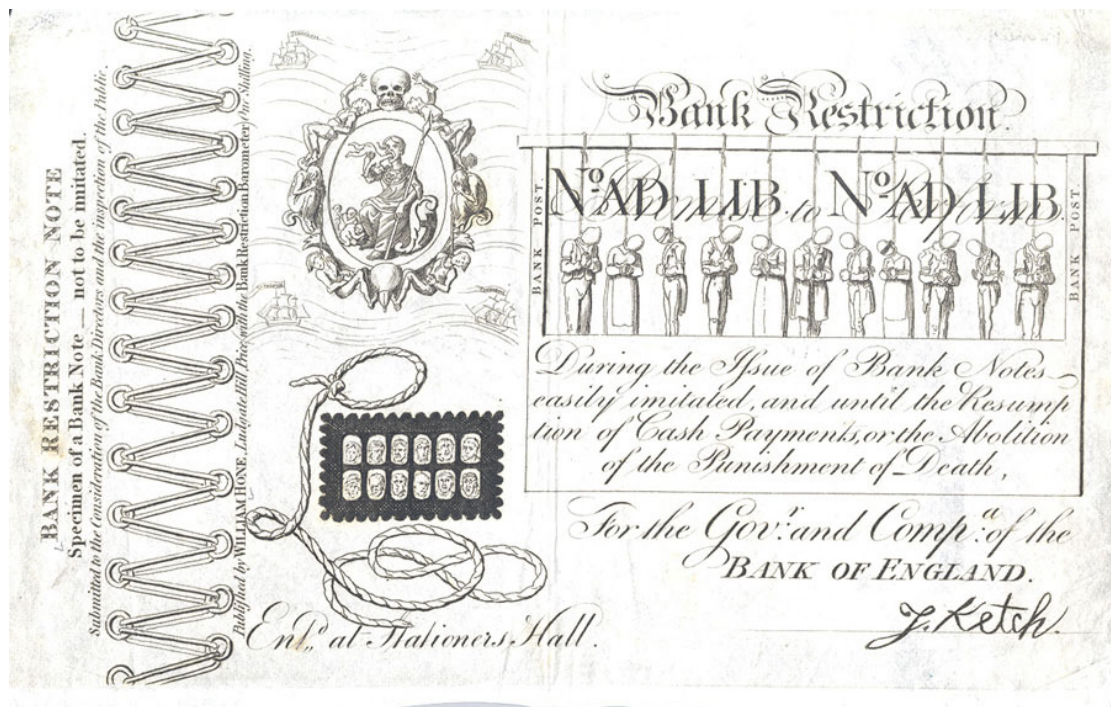 BANK RESTRICTION NOTE
Specimen of a Bank Note — not to be imitated.
Submitted to the Consideration of the Bank Directors and the inspection of the Public.
Published by WILLIAM HONE, Ludgate Hill, Price, with the Bank Restriction Barometer One Shilling.
Bank Restriction.
BANK POST.
No. AD LIB. to No. AD LIB.
BANK POST.
During the Issue of Bank Notes
easily imitated, and until the Resump
tion of Cash Payments, or the Abolition
of the Punishment of Death,
For the Govr. and Compa. of the
BANK OF ENGLAND.
J. Ketch.
Entd. at Stationers Hall.